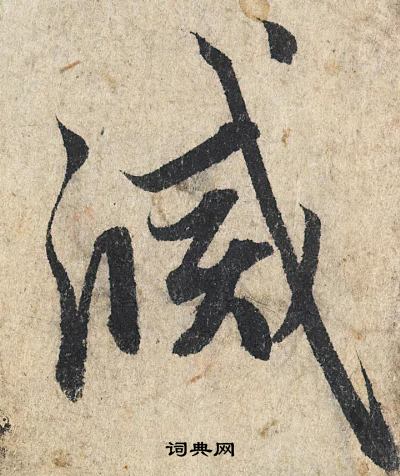 滅
词典网